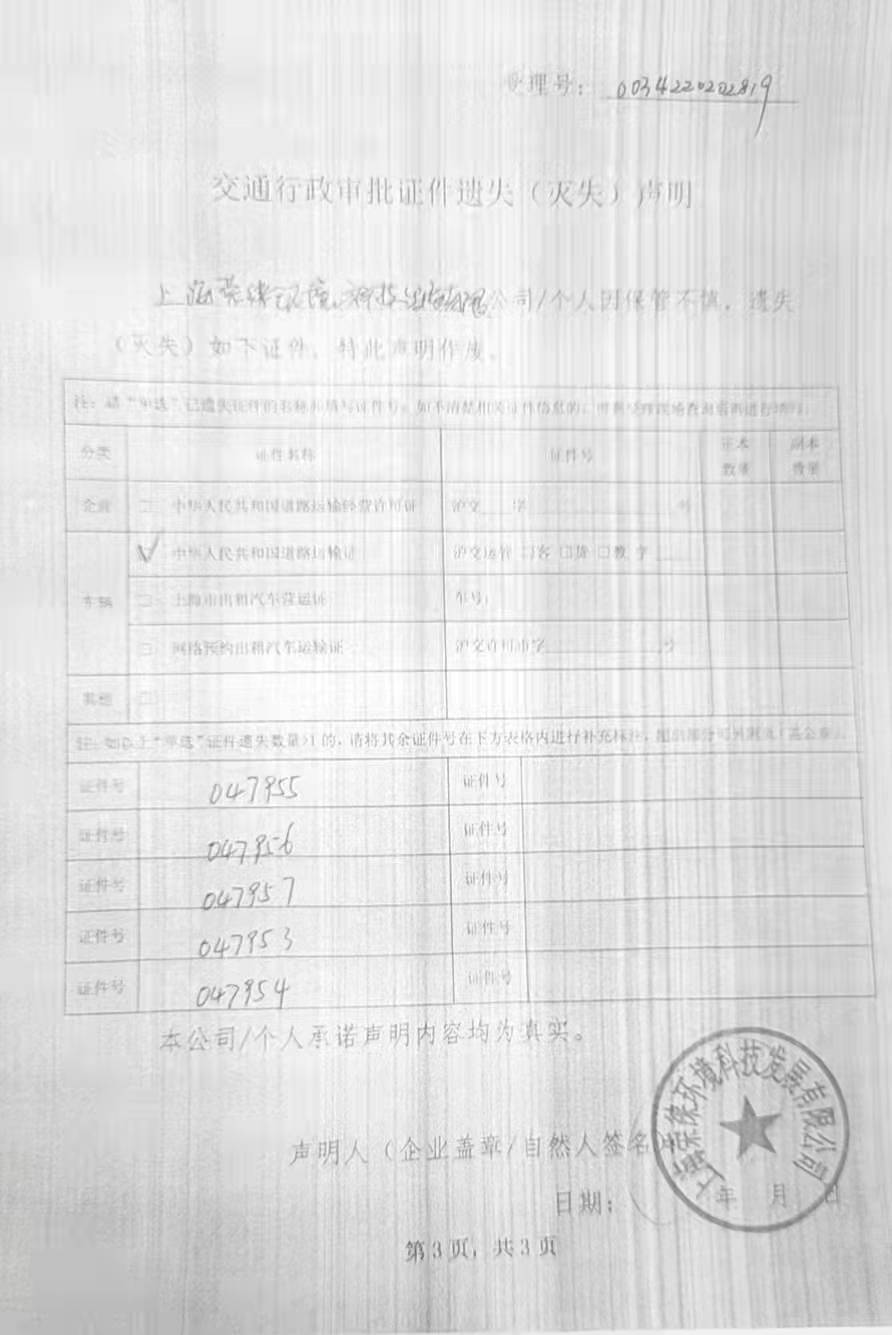 受理号：0034220202819
交通行政审批证件遗失（灭失）声明
上海 公司/个人因保管不慎，遗失
（灭失）如下证件，特此声明作废。
注：请“单选”已遗失证件的名称并填写证件号。如不清楚相关证件信息的，可到受理现场查询后再进行填写。
分类 证件名称 证件号 正本数量 副本数量
企业 □ 中华人民共和国道路运输经营许可证 沪交 字 号
车辆 ✓ 中华人民共和国道路运输证 沪交运管 □客 □货 □教 字
□ 上海市出租汽车营运证 车号：
□ 网络预约出租汽车运输证 沪交许可市字 号
其他 □
注：如以上“单选”证件遗失数量>1的，请将其余证件号在下方表格内进行补充标注，超出部分可另附页（盖公章）。
证件号 047955 证件号
证件号 047956 证件号
证件号 047957 证件号
证件号 047953 证件号
证件号 047954 证件号
本公司/个人承诺声明内容均为真实。
声明人（企业盖章/自然人签名
上海 保环境科技发展有限公司
日期： 年 月 日
第 3 页，共 3 页